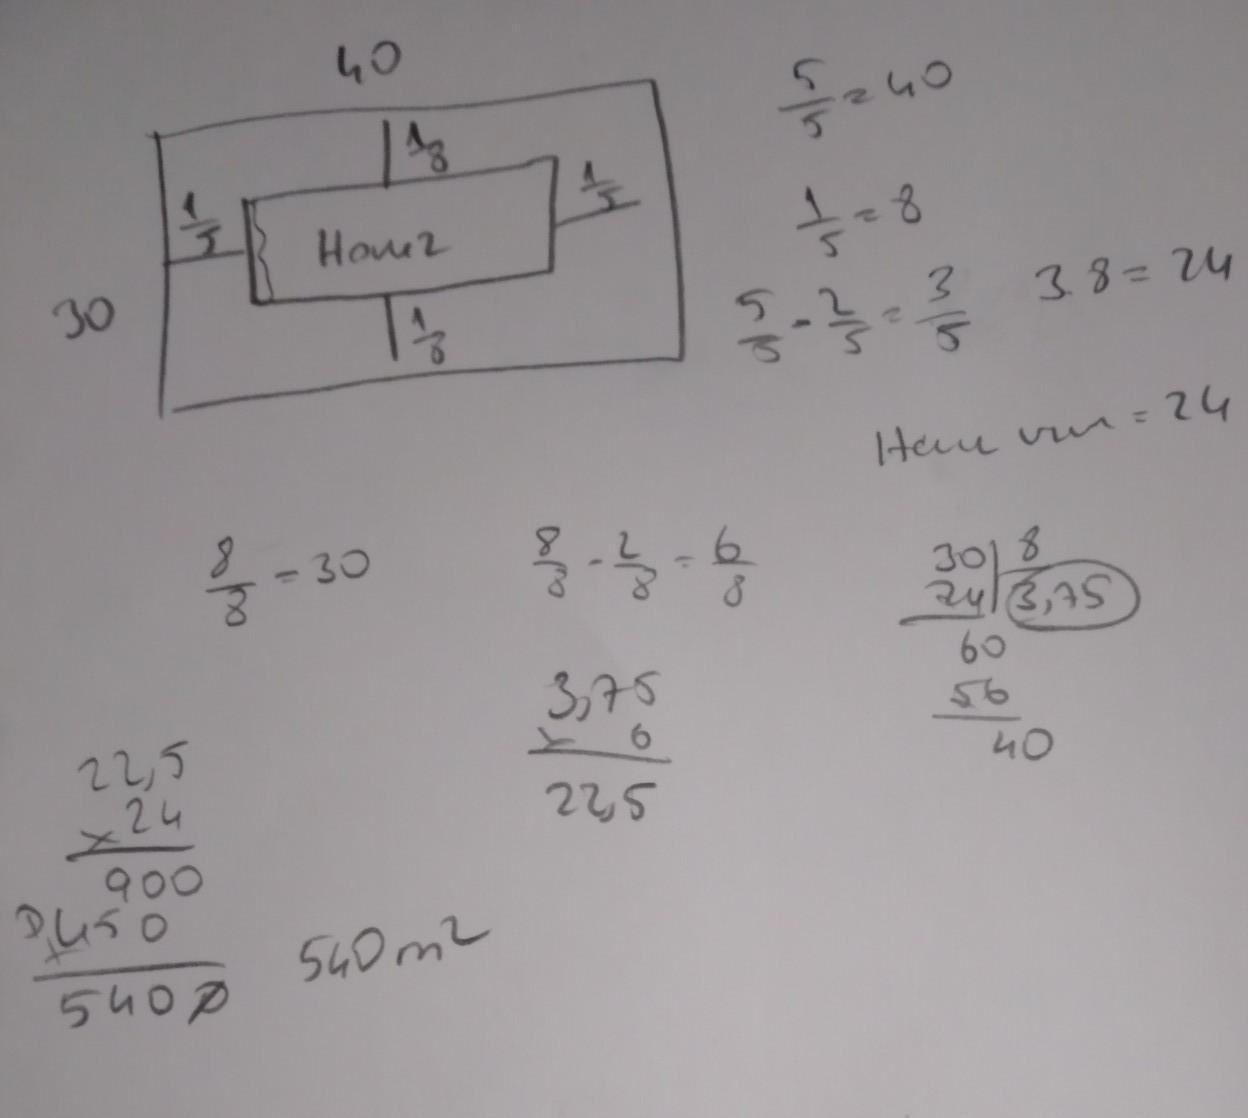 40
5/5 = 40
1/8
1/5
1/5
1/5 = 8
30
1/8
5/5 - 2/5 = 3/5
3.8 = 24
= 24
8/8 = 30
8/8 - 2/8 = 6/8
30 | 8
24 | 3,75
60
56
40
3,75
x 6
22,5
22,5
x 24
900
+ 450
5400
540 m²